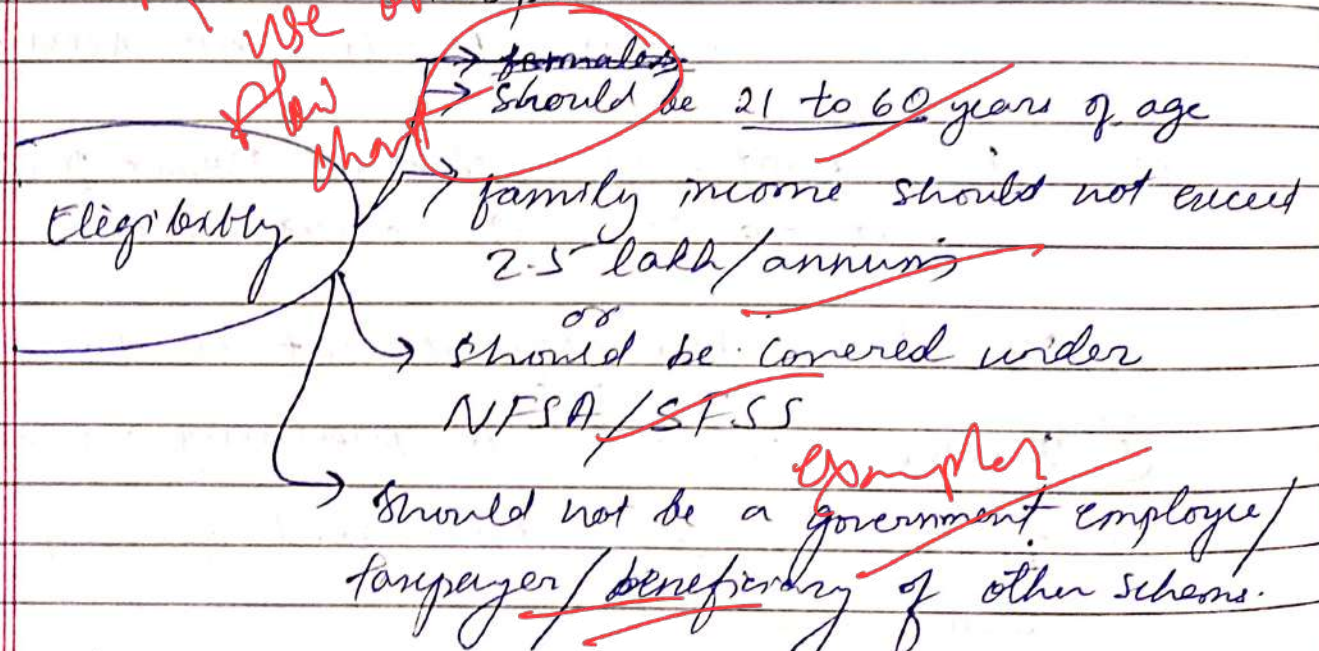 use of
flow
chart
females
should be 21 to 60 years of age
Eligibility
family income should not exceed
2.5 lakh/annum
or
should be covered under
NFSA/SFSS
examples
should not be a government employee/
taxpayer/beneficiary of other schems.